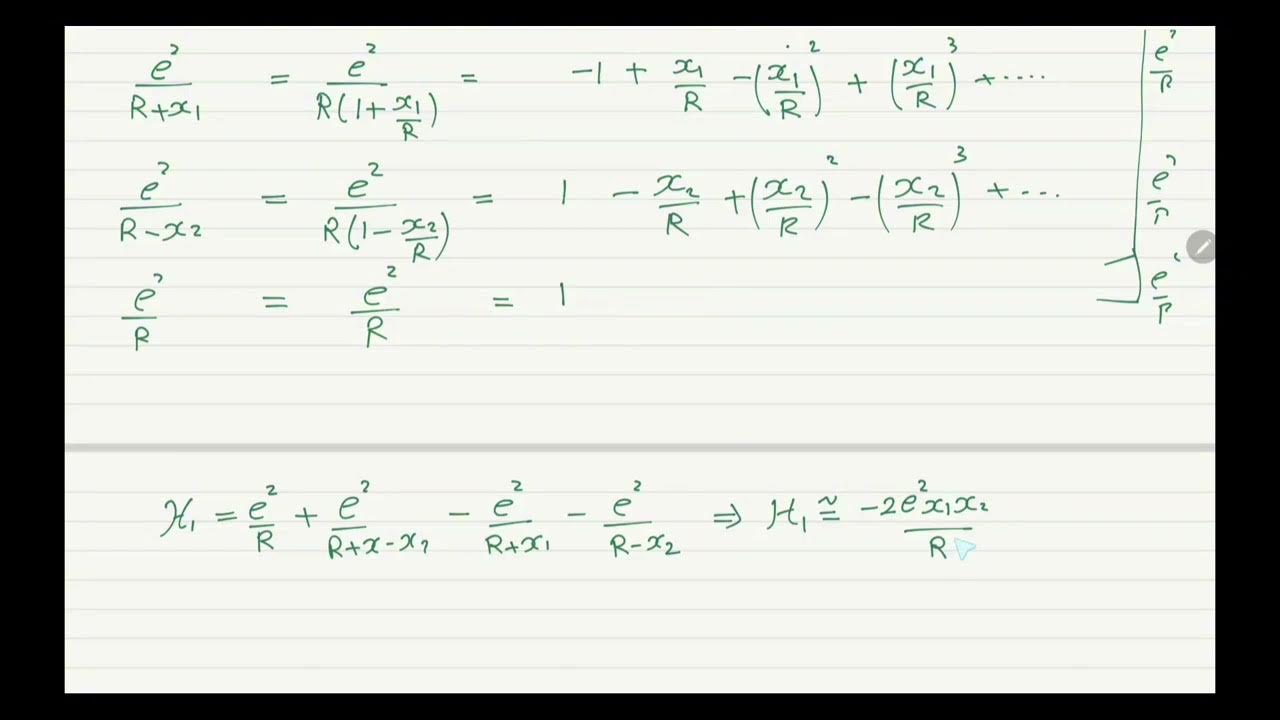 e²/(R+x₁) = e²/(R(1+x₁/R)) = -1 + x₁/R -(x₁/R)² + (x₁/R)³ +···· e²/R
e²/(R-x₂) = e²/(R(1-x₂/R)) = 1 - x₂/R +(x₂/R)² -(x₂/R)³ +···· e²/R
e²/R = e²/R = 1 e²/R
H₁ = e²/R + e²/(R+x-x₂) - e²/(R+x₁) - e²/(R-x₂) ⇒ H₁ ≅ -2e²x₁x₂/R